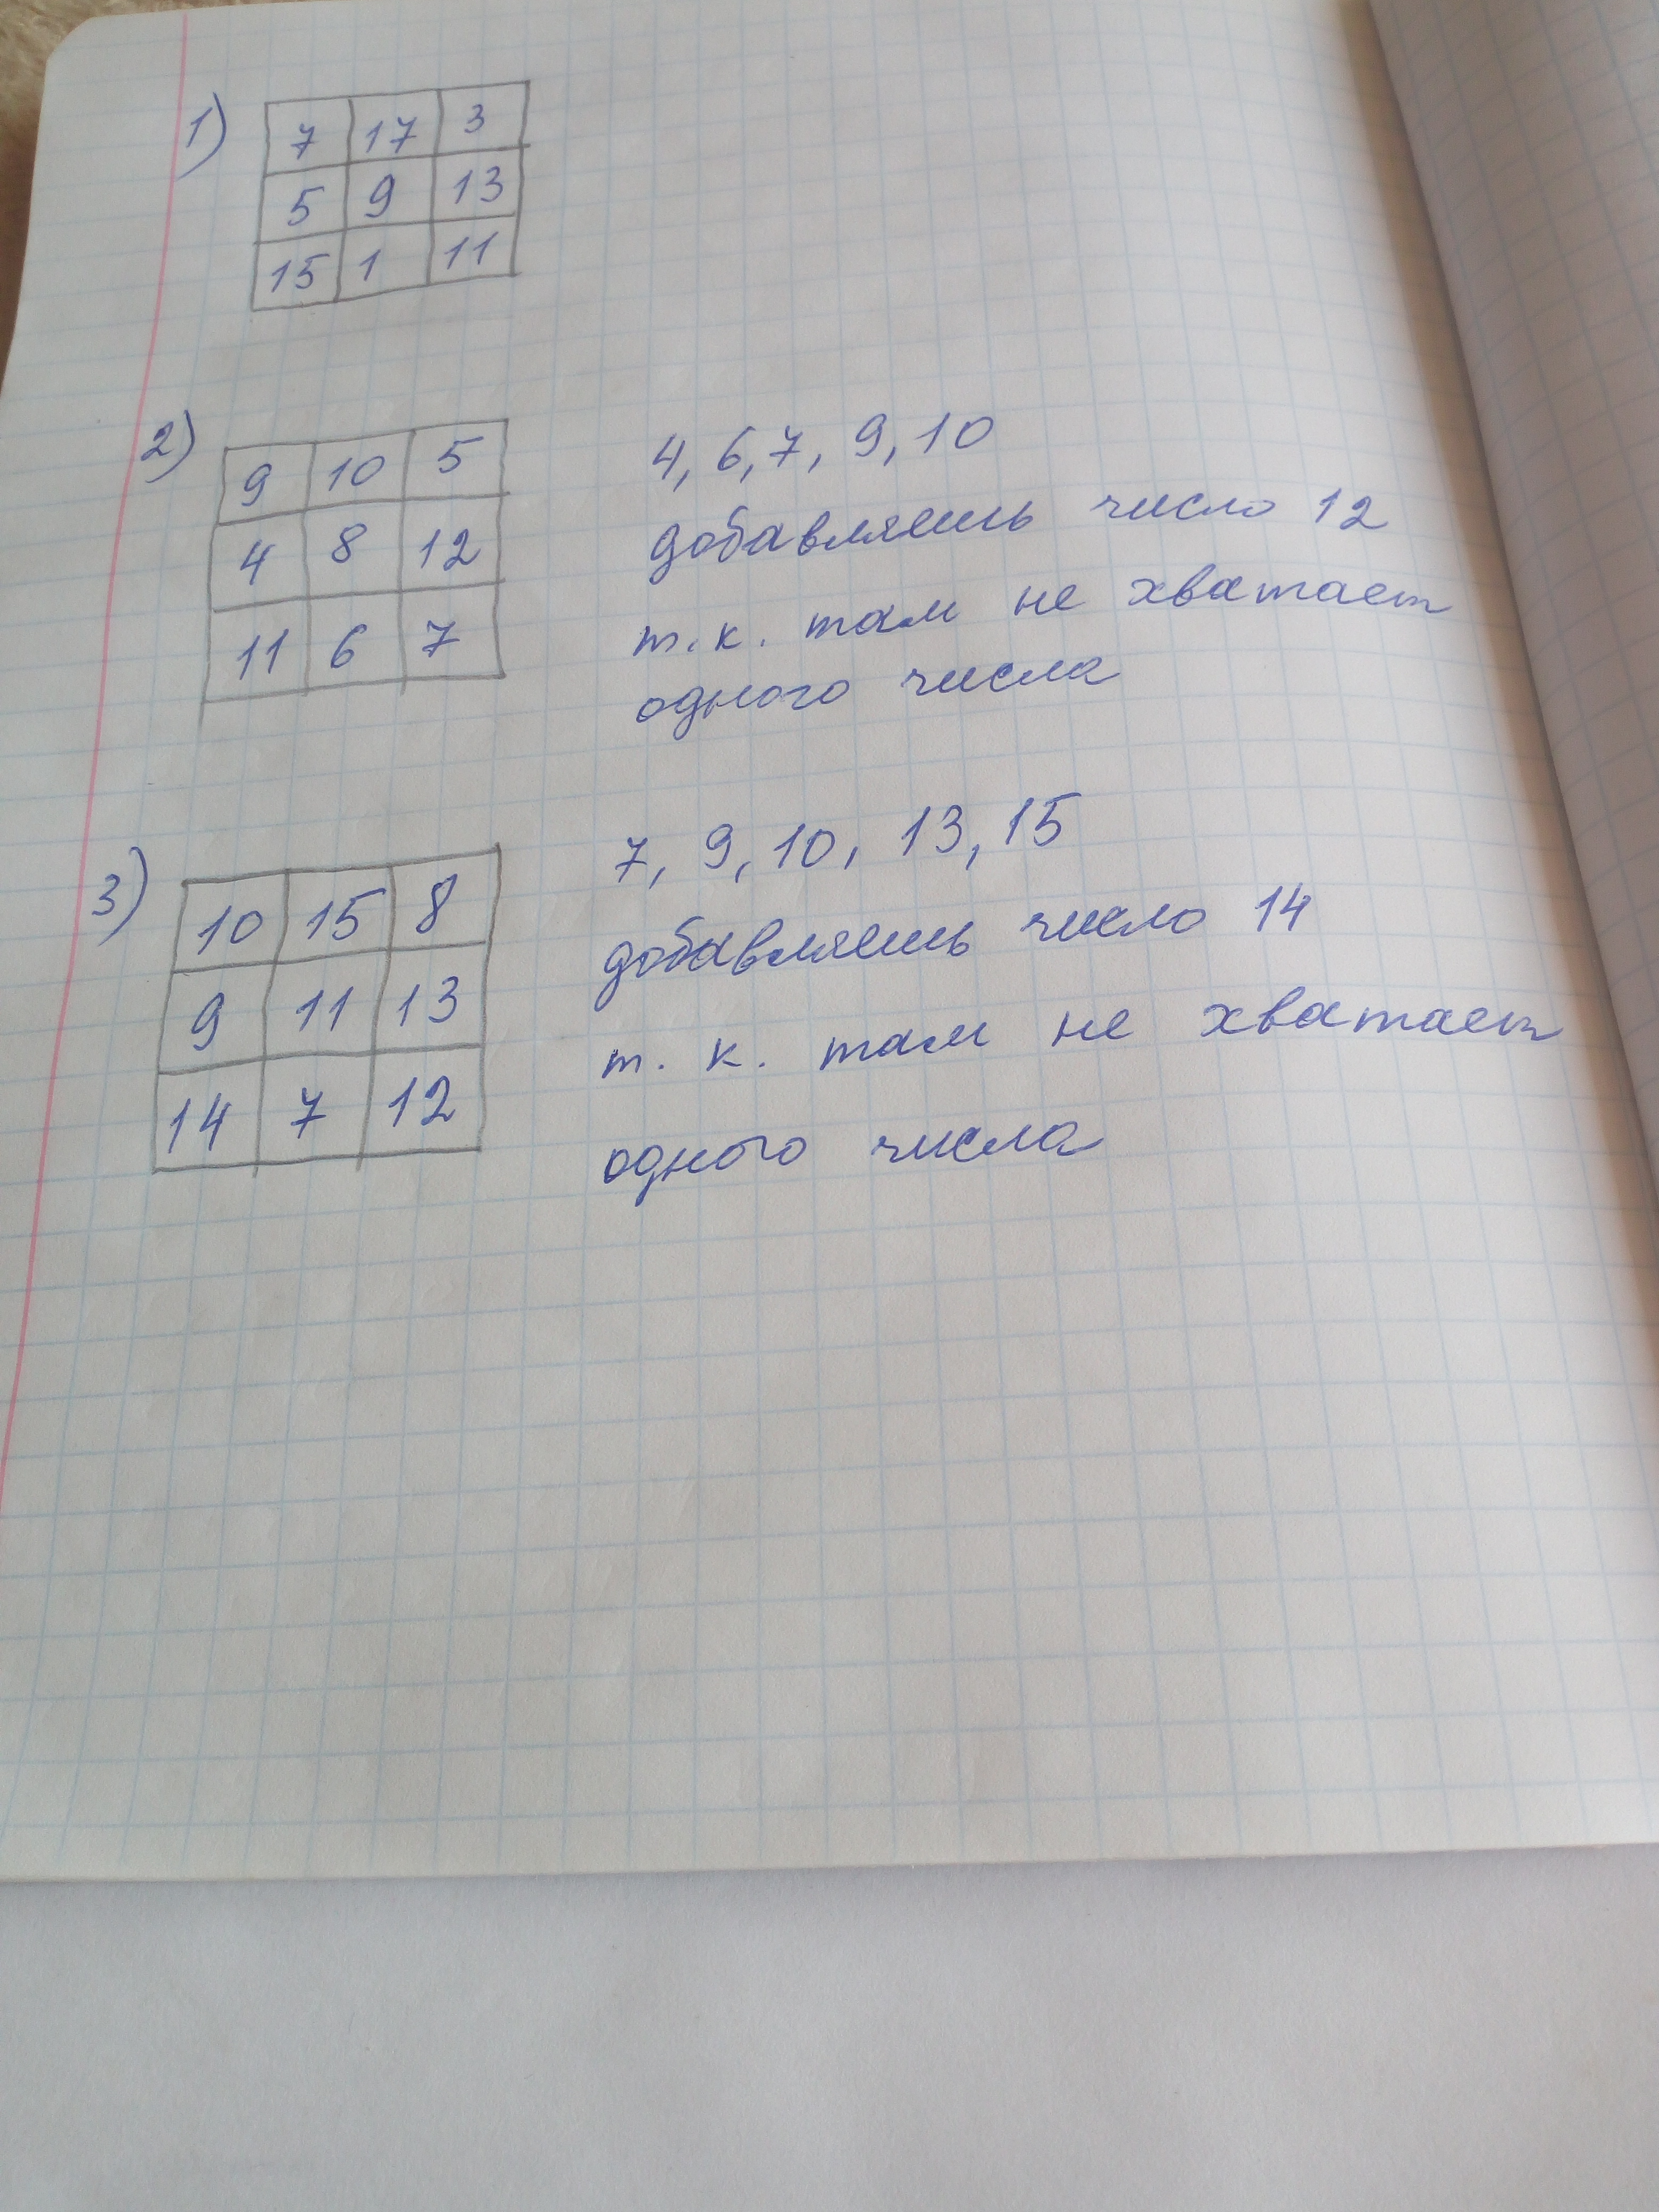 1)
7 17 3
5 9 13
15 1 11
2)
9 10 5
4 8 12
11 6 7
4, 6, 7, 9, 10
добавляешь число 12
т.к. там не хватает
одного числа
3)
10 15 8
9 11 13
14 7 12
7, 9, 10, 13, 15
добавляешь число 14
т. к. там не хватает
одного числа